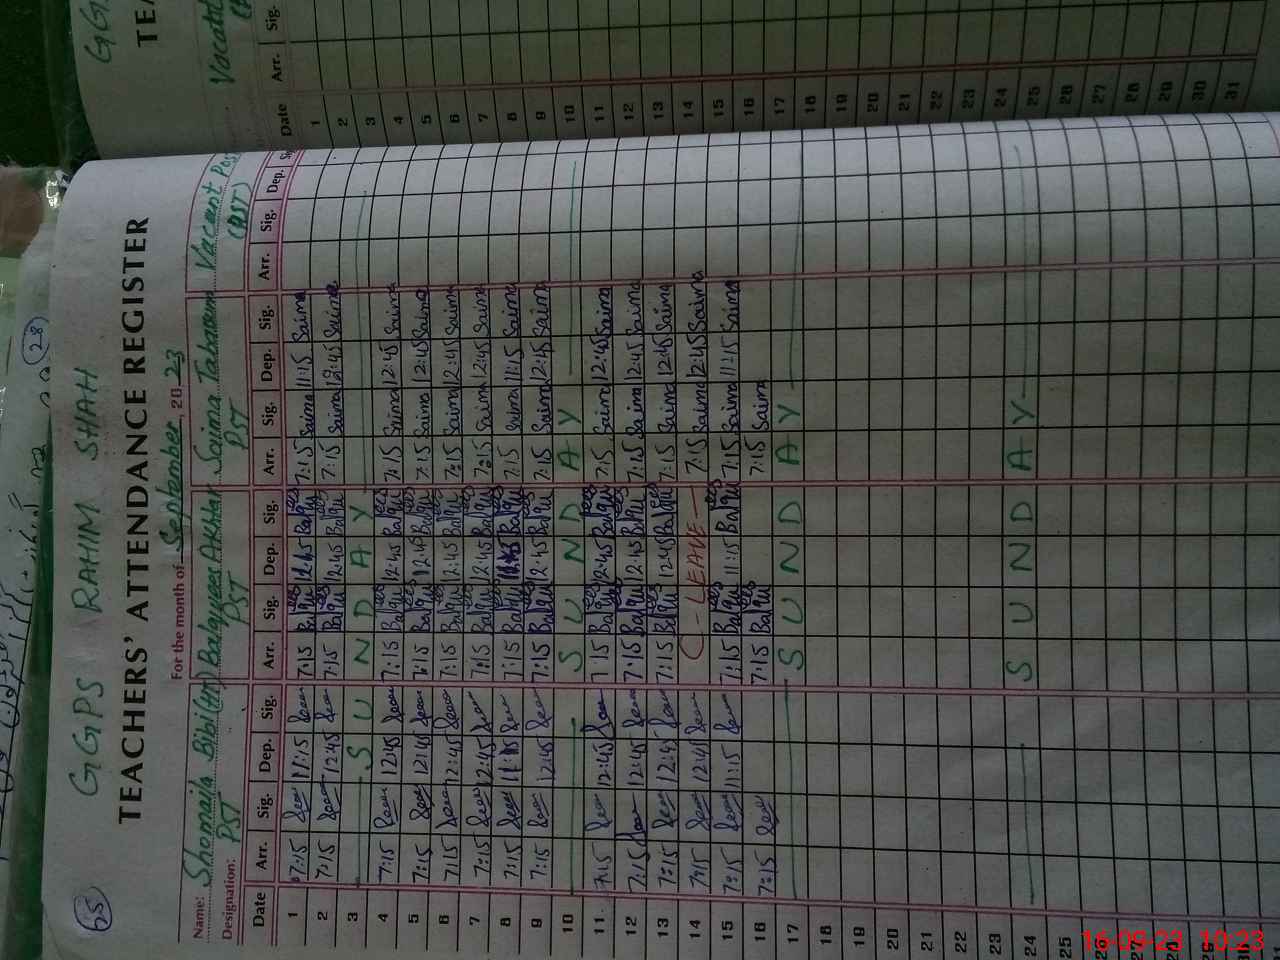 65
GGPS RAHIM SHAH
TEACHERS' ATTENDANCE REGISTER
For the month of September, 2023
Name: Shomaila Bibi (Hr) Balqyees Akhtar Saima Tabassum Vacant Post
Designation: PST PST PST (PST)
Date Arr. Sig. Dep. Sig. Arr. Sig. Dep. Sig. Arr. Sig. Dep. Sig. Arr. Sig. Dep. Sig.
1 7:15 11:15 7:15 Balqees 12:45 Balqees 7:15 Saima 11:15 Saima
2 7:15 12:45 7:15 Balqees 12:45 Balqees 7:15 Saima 12:45 Saima
3 SUNDAY
4 7:15 12:45 7:15 Balqees 12:45 Balqees 7:15 Saima 12:45 Saima
5 7:15 12:45 7:15 Balqees 12:45 Balqees 7:15 Saima 12:45 Saima
6 7:15 12:45 7:15 Balqees 12:45 Balqees 7:15 Saima 12:45 Saima
7 7:15 12:45 7:15 Balqees 12:45 Balqees 7:15 Saima 12:45 Saima
8 7:15 11:15 7:15 Balqees Balqees 7:15 Saima 11:15 Saima
9 7:15 12:45 7:15 Balqees 12:45 Balqees 7:15 Saima 12:45 Saima
10 SUNDAY
11 7:15 12:45 7:15 Balqees 12:45 Balqees 7:15 Saima 12:45 Saima
12 7:15 12:45 7:15 Balqees 12:45 Balqees 7:15 Saima 12:45 Saima
13 7:15 12:45 7:15 Balqees 12:45 Balqees 7:15 Saima 12:45 Saima
14 7:15 12:45 C-LEAVE 7:15 Saima 12:45 Saima
15 7:15 11:15 7:15 Balqees 11:15 Balqees 7:15 Saima 11:15 Saima
16 7:15 7:15 Balqees 7:15 Saima
17 SUNDAY
18
19
20
21
22
23
24 SUNDAY
25
26
27
28
29
30
28
GG
TEA
Vacant
Date Arr. Sig.
1
2
3
4
5
6
7
8
9
10
11
12
13
14
15
16
17
18
19
20
21
22
23
24
25
26
27
28
29
30
31
16-09-23 10:23